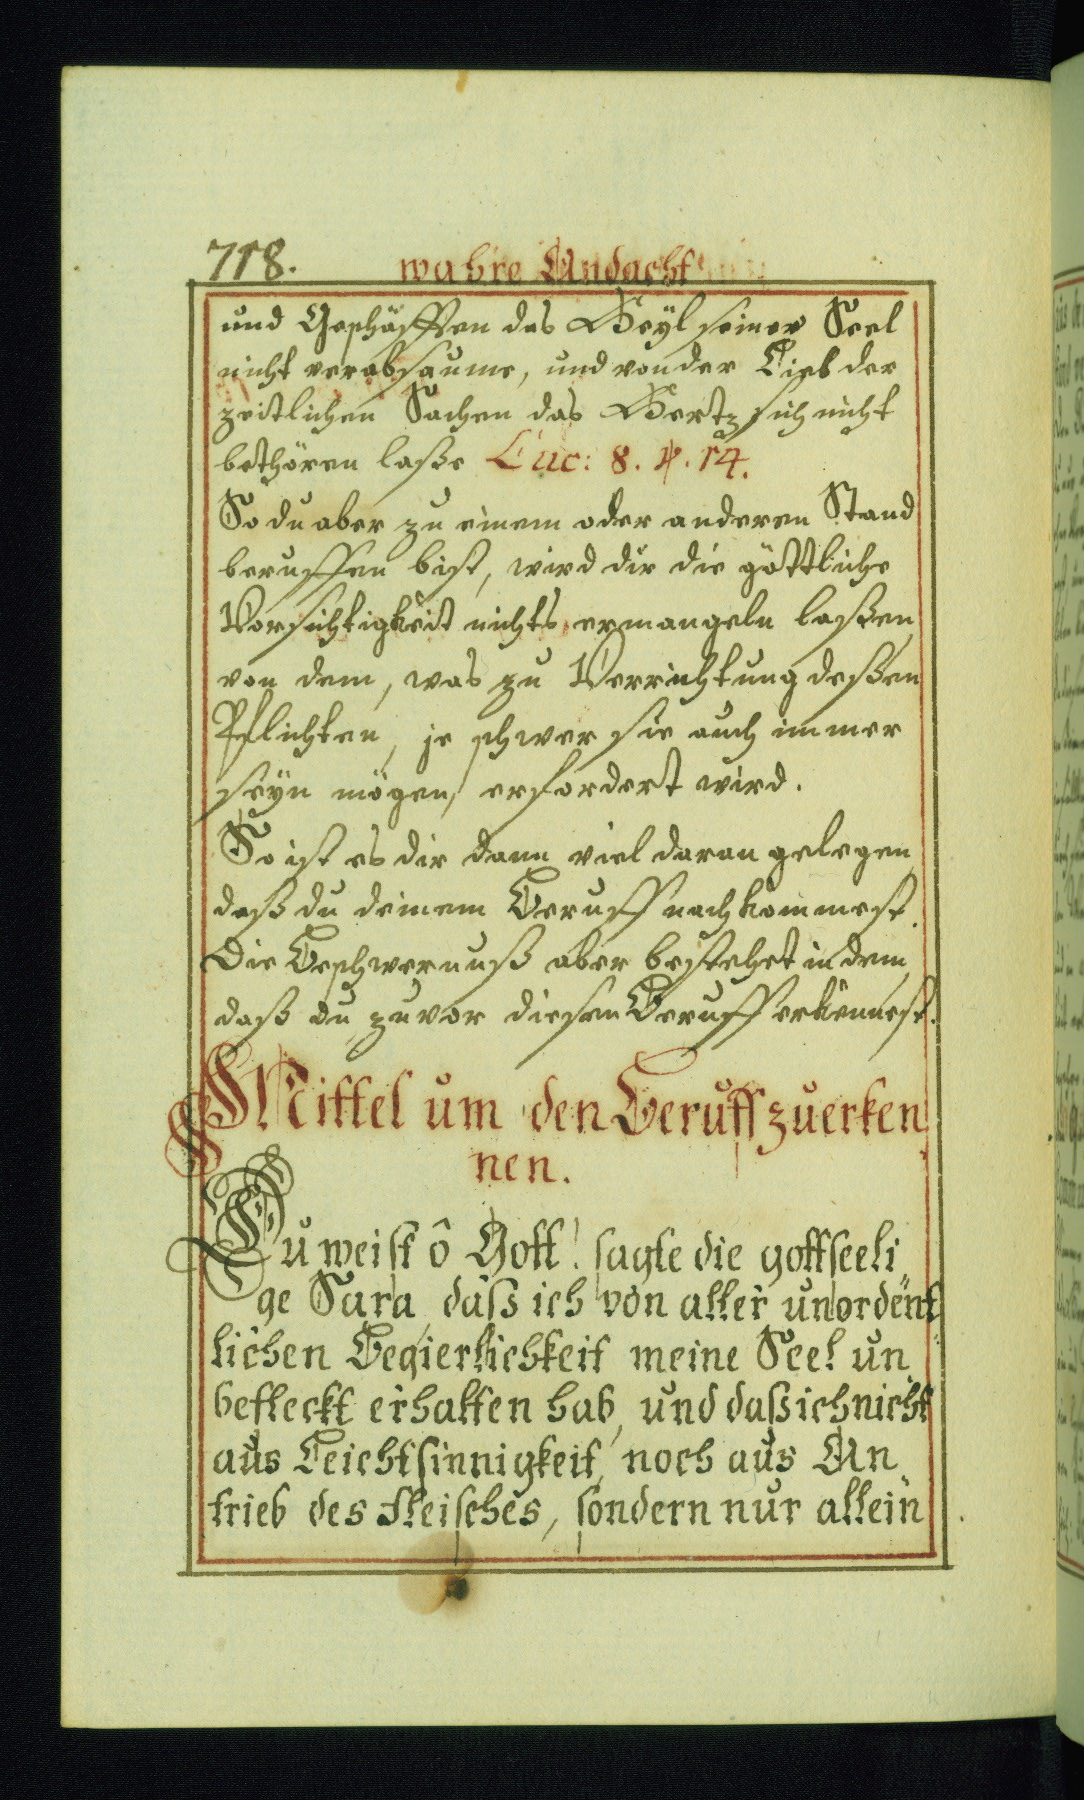 718. wahre Andacht
und Geschäfften das Heyl seiner Seel
nicht verabsaume, und von der Lieb der
zeitlichen Sachen das Hertz sich nicht
bethören laße Luc: 8. ℣. 14.
So du aber zu einem oder anderen Stand
beruffen bist, wird dir die göttliche
Vorsichtigkeit nichts ermangeln laßen,
von dem, was zu Verrichtung deßen
Pflichten, je schwer sie auch immer
seyn mögen, erfordert wird.
So ist es dir dann viel daran gelegen,
daß du deinem Beruff nachkommest.
Die Beschwernuß aber bestehet in dem,
daß du zuvor diesen Beruff erkennest.
Mittel um den Beruff zuerken
nen.
Du weist ô Gott! sagte die gottseeli
ge Sara, daß ich von aller unordent
lichen Begierlichkeit meine Seel un
befleckt erhalten hab, und daß ich nicht
aus Leichtsinnigkeit, noch aus An
trieb des Fleisches, sondern nur allein